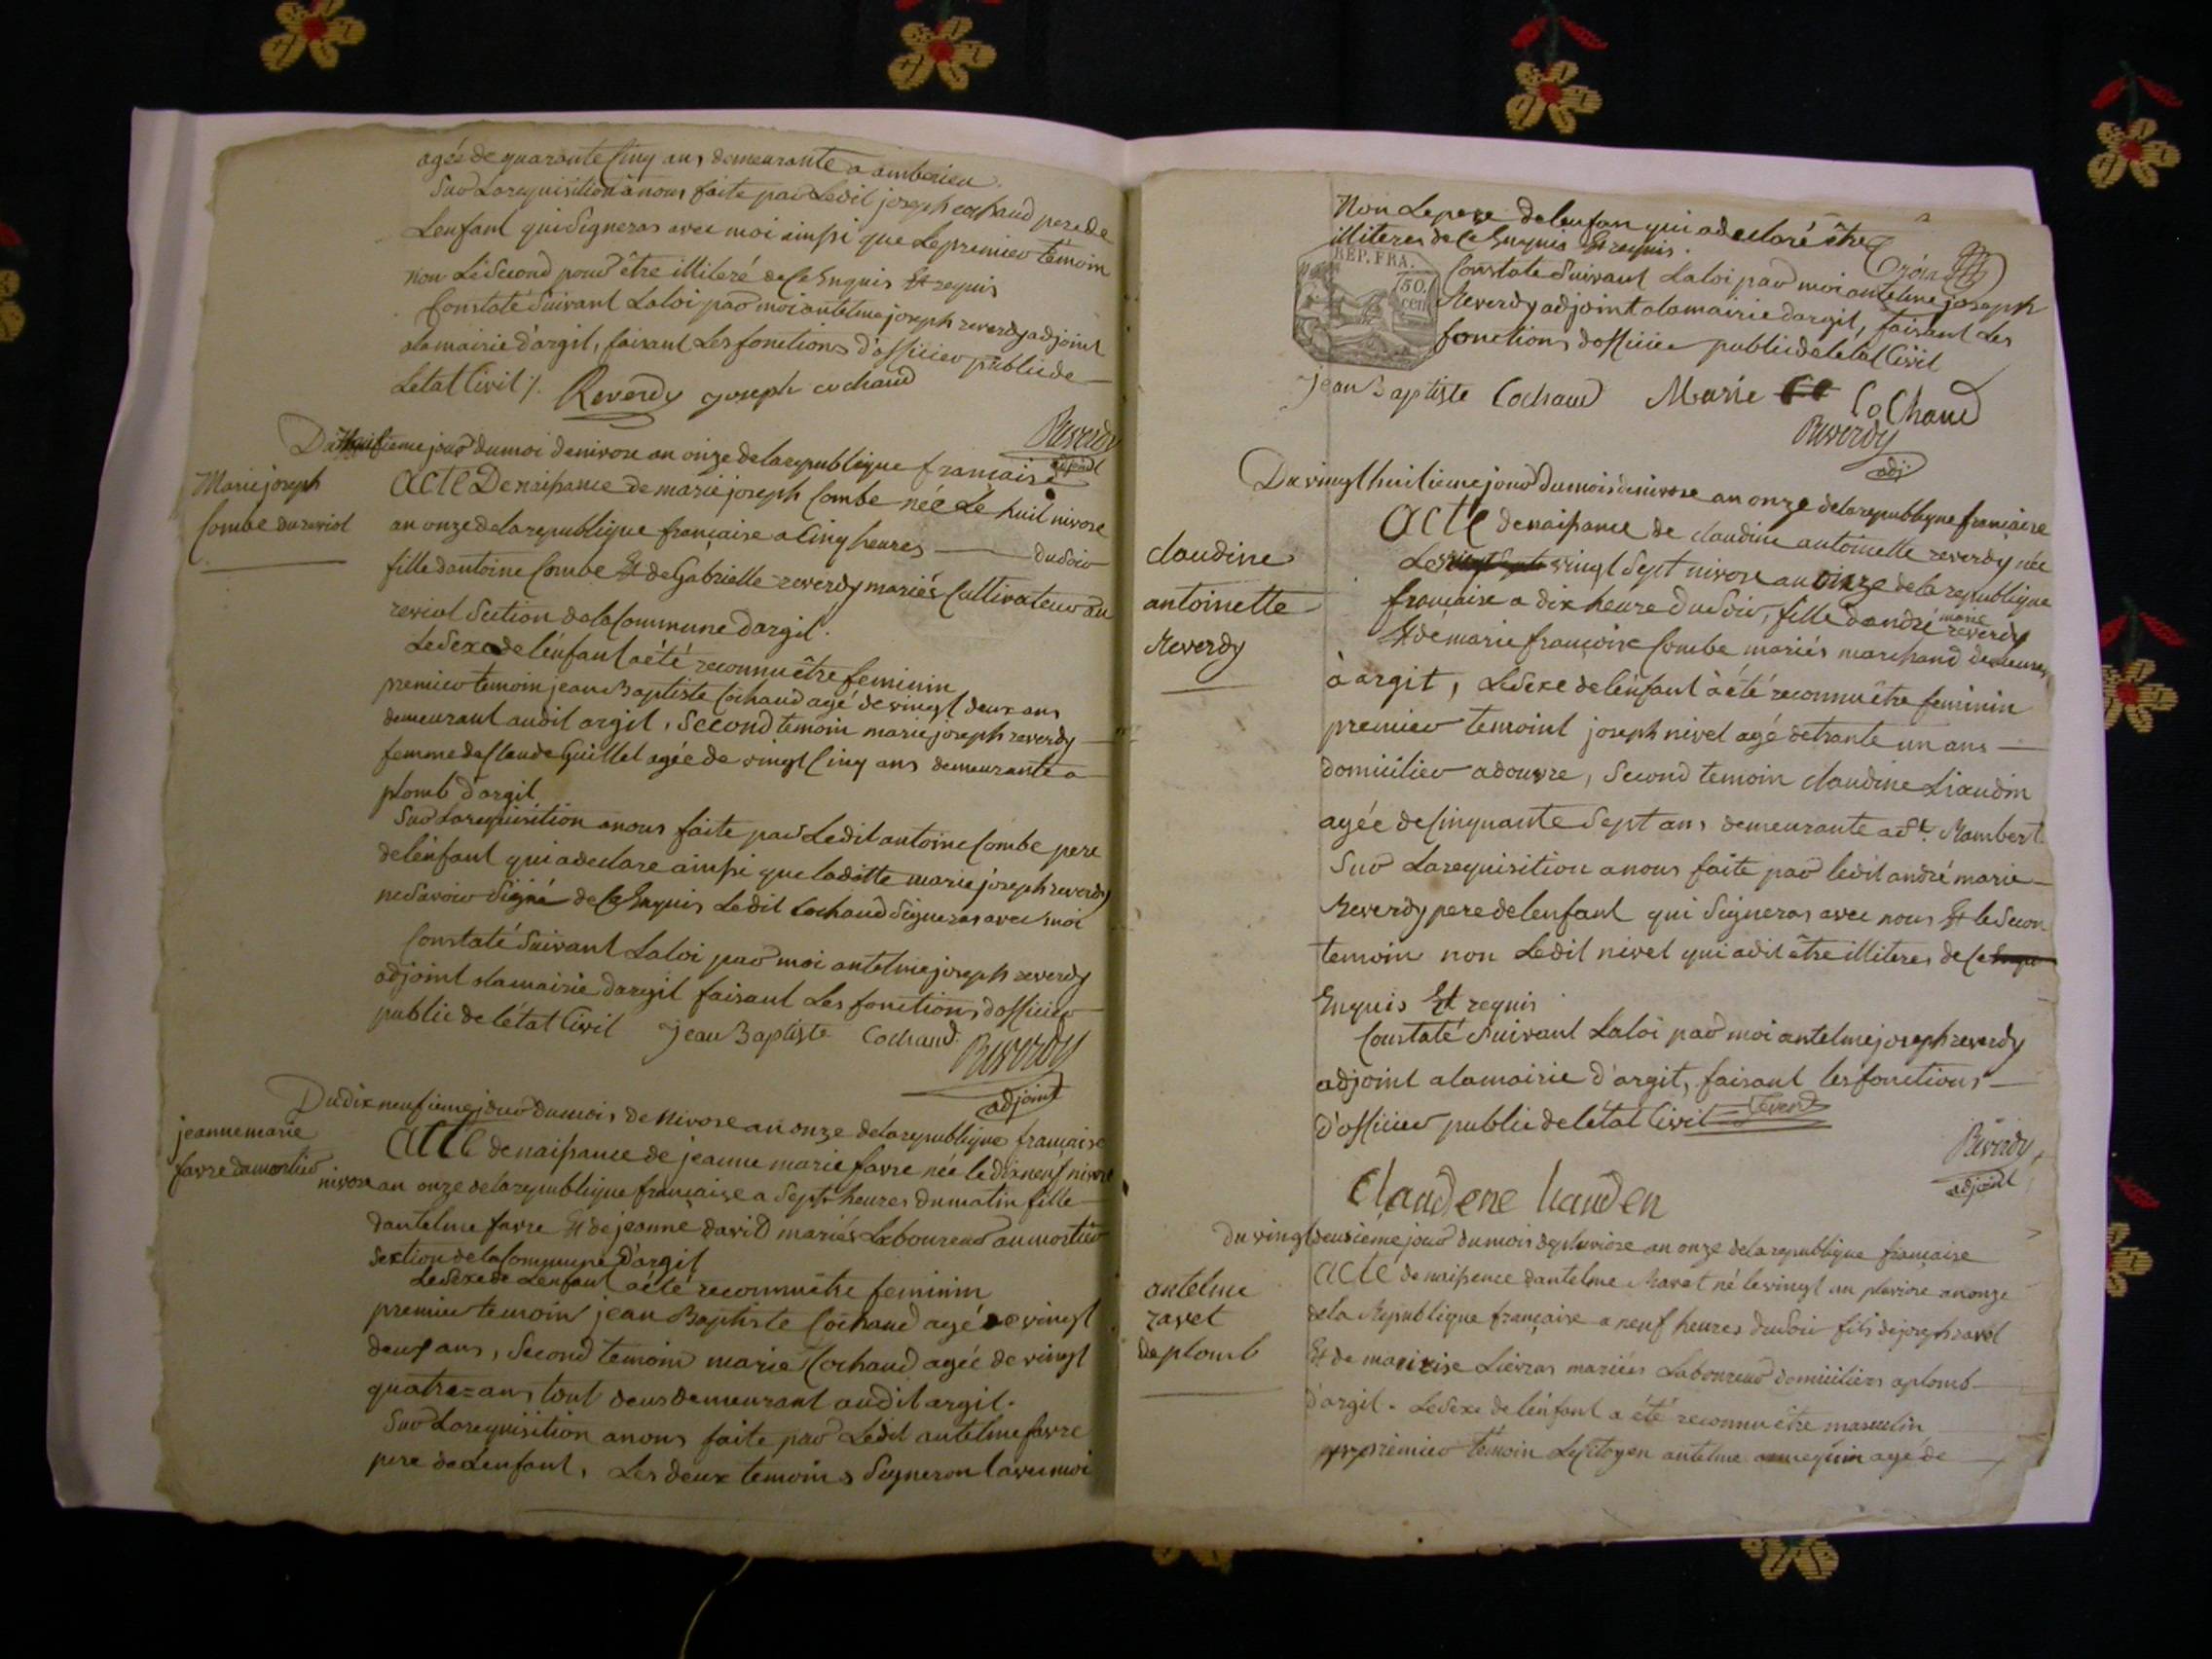 agée de quarante Cinq ans demeurante a amberieu.
Sur La requisition a nous faite par Ledit joseph cochaud pere de
Lenfant qui Signeras avec moi ainsi que Le premier témoin
non Le Second pour être illiteré de Ce Enquis Et requis
Constaté Suivant La loi par moi antelme joseph reverdy adjoint
a la mairie d'argit, faisant Les fonctions d'officier public de
Letat Civil /. Reverdy joseph cochaud
Reverdy
adjoint
Du huitieme jour du moi de nivose an onze de la republique francaise
Marie joseph
Combe du reviol
Acte De naissance de marie joseph Combe née Le huit nivose
an onze de la republique française a Cinq heures du Soir
fille d'antoine Combe Et de Gabrielle reverdy mariés Cultivateur au
reviol Section de la Commune d'argit.
Le Sexe de l'énfant a été reconnu être feminin
premier temoin jean Baptiste Cochaud agé de vingt deux ans
demeurant audit argit, Second temoin marie joseph reverdy
femme de Claude Guillet agée de vingt Cinq ans demeurante a
plomb d'argit
Sur La requisition a nous faite par Ledit antoine Combe pere
de lénfant qui a declare ainsi que laditte marie joseph reverdy
ne Savoir Signé de Ce Enquis Ledit Cochaud Signeras avec moi
Constaté Suivant La loi par moi antelme joseph reverdy
adjoint a la mairie d'argit faisant Les fonctions d'officier
public de l'état Civil Jean Baptiste Cochaud.
Reverdy
adjoint
Du dix neufieme jour du mois de Nivose an onze de la republique française
jeanne marie
favre du mortier
Acte de naissance de jeanne marie favre née le dix neuf nivose
nivose an onze de la republique française a Sept heures du matin fille
d'antelme favre Et de jeanne david mariés Laboureur au mortier
Section de la Commune D'argit
Le Sexe de Lenfant a été reconnu être feminin
premier temoin jean Baptiste Cochaud agé de vingt
deux ans, Second temoin marie Cochaud agée de vingt
quatre ans tout deus demeurant audit argit.
Sur La requisition a nous faite par Ledit antelme favre
pere de Lenfant, Les deux temoins Signeron avec moi
Non Le pere de lenfan qui a declaré être
illiteres de Ce Enquis Et requis.
REP. FRA.
50.
cen
Constate Suivant La loi par moi antelme joseph
Reverdy adjoint a la mairie d'argit, faisant Les
fonctions d'officier public de l'etat Civil
Jean Baptiste Cochaud Marie Cochaud
Reverdy
adj
Du vingt huitieme jour Du mois de nivose an onze de la republique francaise
claudine
antoinette
Reverdy
Acte de naissance de claudine antoinette reverdy née
Le vingt Sept nivose an onze de la republique
française a dix heure du Soir, fille d'andré marie reverdy
Et de marie françoise Combe mariés marchand demeurant
à argit, Le Sexe de lénfant à été reconnu être feminin
premier temoint joseph nivet agé de trante un ans
domicilier a douvre, Second temoin claudine Liaudin
agée de Cinquante Sept ans demeurante a St. Rambert
Sur La requisition a nous faite par ledit andré marie
Reverdy pere de lenfant qui Signeras avec nous Et le Secon
temoin non Ledit nivet qui a dit être illiteres de Ce
Enquis Et requis
Constaté Suivant La loi par moi antelme joseph reverdy
adjoint a la mairie d'argit, faisant les fonctions
D'officier public de létat Civil
Reverdy
adjoint
Claudene liauden
du vingt deusiéme jour du mois de pluviose an onze de la republique française
antelme
ravet
de plomb
Acte de naissence d'antelme Ravet né le vingt un pluviose an onze
de la Republique française a neuf heures du Soir fils de joseph ravet
Et de Lievras mariées Laboureur domiciliers a plomb
d'argit. Le Sexe de l'énfant a été reconnu être masculin
premier témoin Le Citoyen antelme agé de